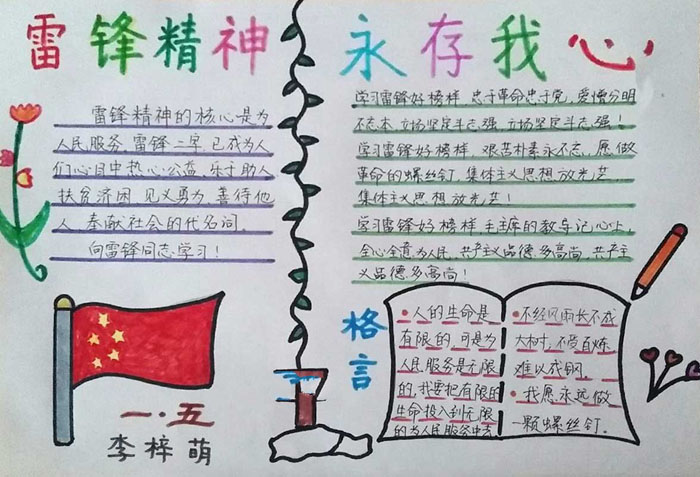 雷锋精神 永存我心
雷锋精神的核心是为
人民服务,雷锋二字,已成为人
们心目中热心公益,乐于助人
扶贫济困,见义勇为,善待他
人,奉献社会的代名词。
向雷锋同志学习!
学习雷锋好榜样,忠于革命忠于党,爱憎分明
不忘本,立场坚定斗志强,立场坚定斗志强!
学习雷锋好榜样,艰苦朴素永不忘,愿做
革命的螺丝钉,集体主义思想放光芒,
集体主义思想放光芒!
学习雷锋好榜样,毛主席的教导记心上,
全心全意为人民,共产主义品德多高尚,共产主
义品德多高尚!
一.五
李梓萌
格言
人的生命是
有限的,可是为
人民服务是无限
的,我要把有限的
生命投入到无限
的为人民服务中去
不经风雨,长不成
大树,不受百炼,
难以成钢。
我愿永远做
一颗螺丝钉。